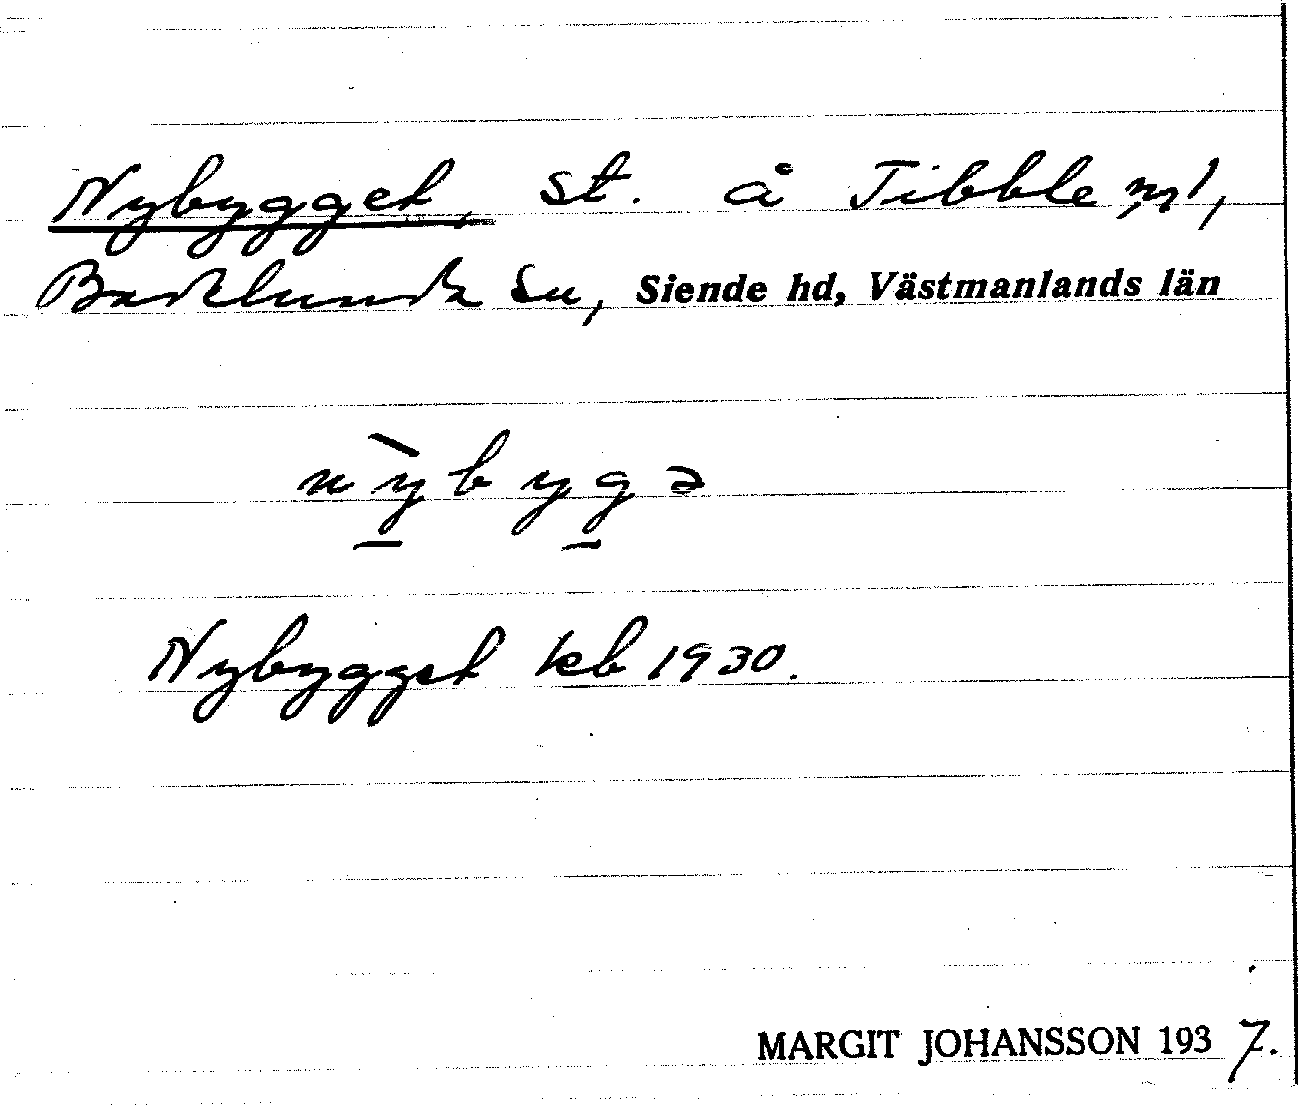 Nybygget, st. å Tibble nr 1,
Badelunda sn, Siende hd, Västmanlands län
nỳbygə
Nybygget kb 1930.
MARGIT JOHANSSON 1937.